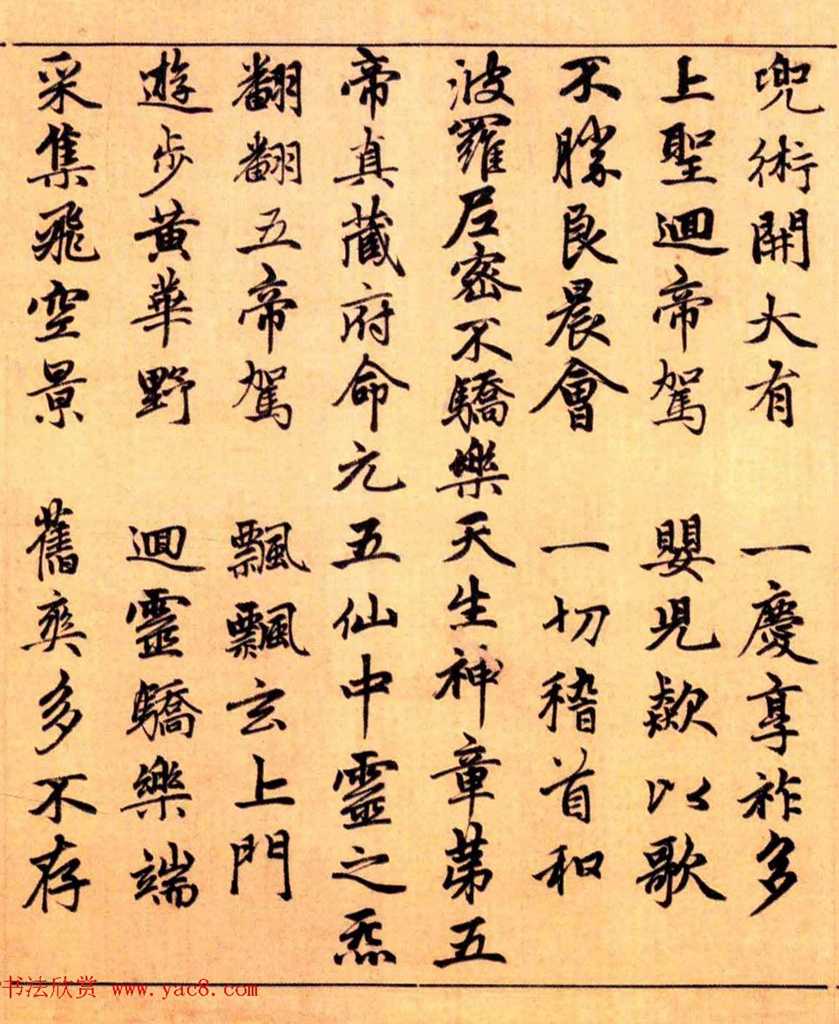 兜術開大有　一慶享祚多
上聖迴帝駕　嬰兒歘以歌
不勝良晨會　一切稽首和
波羅尼密不驕樂天生神章第五
帝真藏府命元五仙中靈之炁
翩翩五帝駕　飄飄玄上門
遊步黄華野　迴靈驕樂端
采集飛空景　舊爽多不存
书法欣赏 www.yac8.com